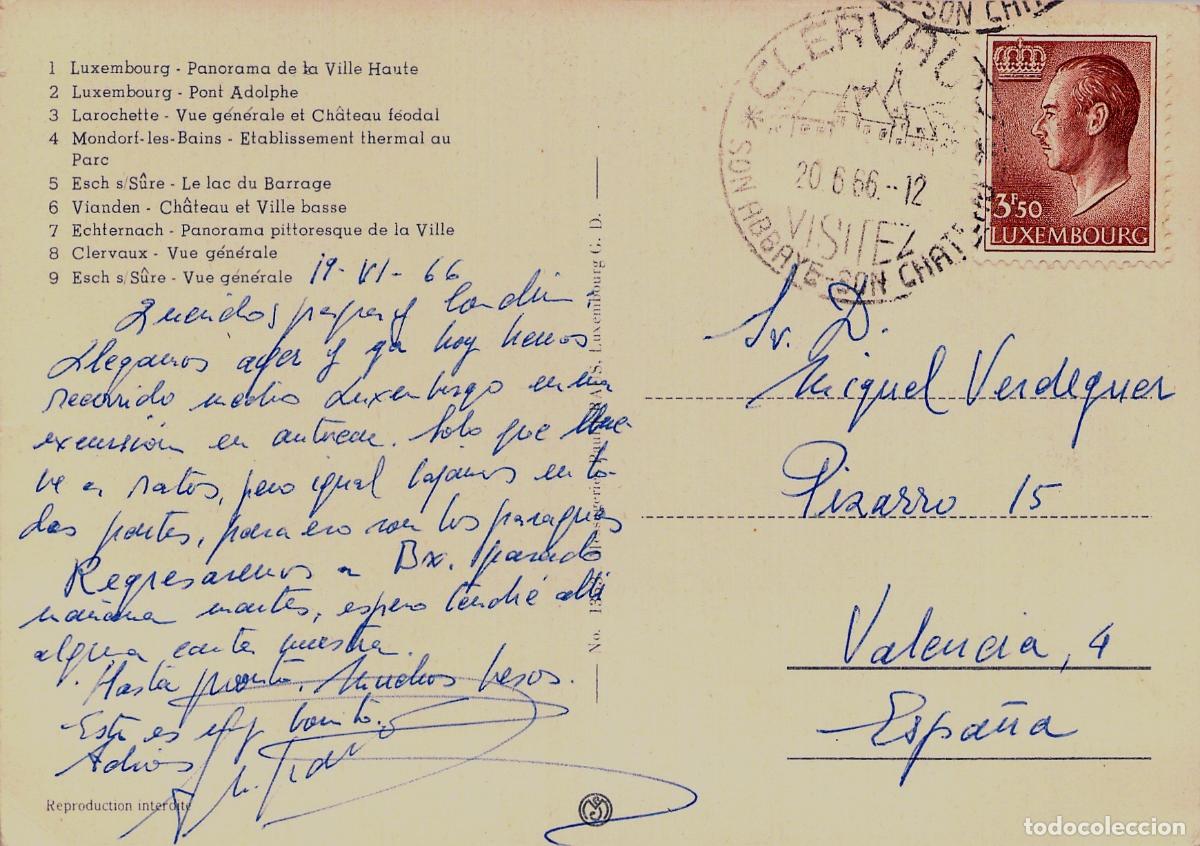 1 Luxembourg - Panorama de la Ville Haute
2 Luxembourg - Pont Adolphe
3 Larochette - Vue générale et Château féodal
4 Mondorf-les-Bains - Etablissement thermal au
Parc
5 Esch s/Sûre - Le lac du Barrage
6 Vianden - Château et Ville basse
7 Echternach - Panorama pittoresque de la Ville
8 Clervaux - Vue générale
9 Esch s/Sûre - Vue générale
19-VI-66
Queridos papas y
Llegamos ayer y ya hoy hemos
recorrido medio Luxemburgo en una
excursión en autocar. Solo que llue
ve a ratos, pero igual bajamos en to-
das partes, para eso son los paraguas
Regresaremos a Bx. pasado
mañana martes, espero tendré allí
alguna carta vuestra.
Hasta pronto. Muchos besos.
Este es muy bonito.
Adios
Reproduction interdite
No. Messageries Paul KRAUS, Luxembourg G. D.
-SON CHAT
CLERVAUX
20 6 66.-12
VISITEZ
* SON ABBAYE-SON CHAT
3F50
LUXEMBOURG
Sr. D.
Miguel Verdeguer
Pizarro 15
Valencia, 4
España
todocoleccion